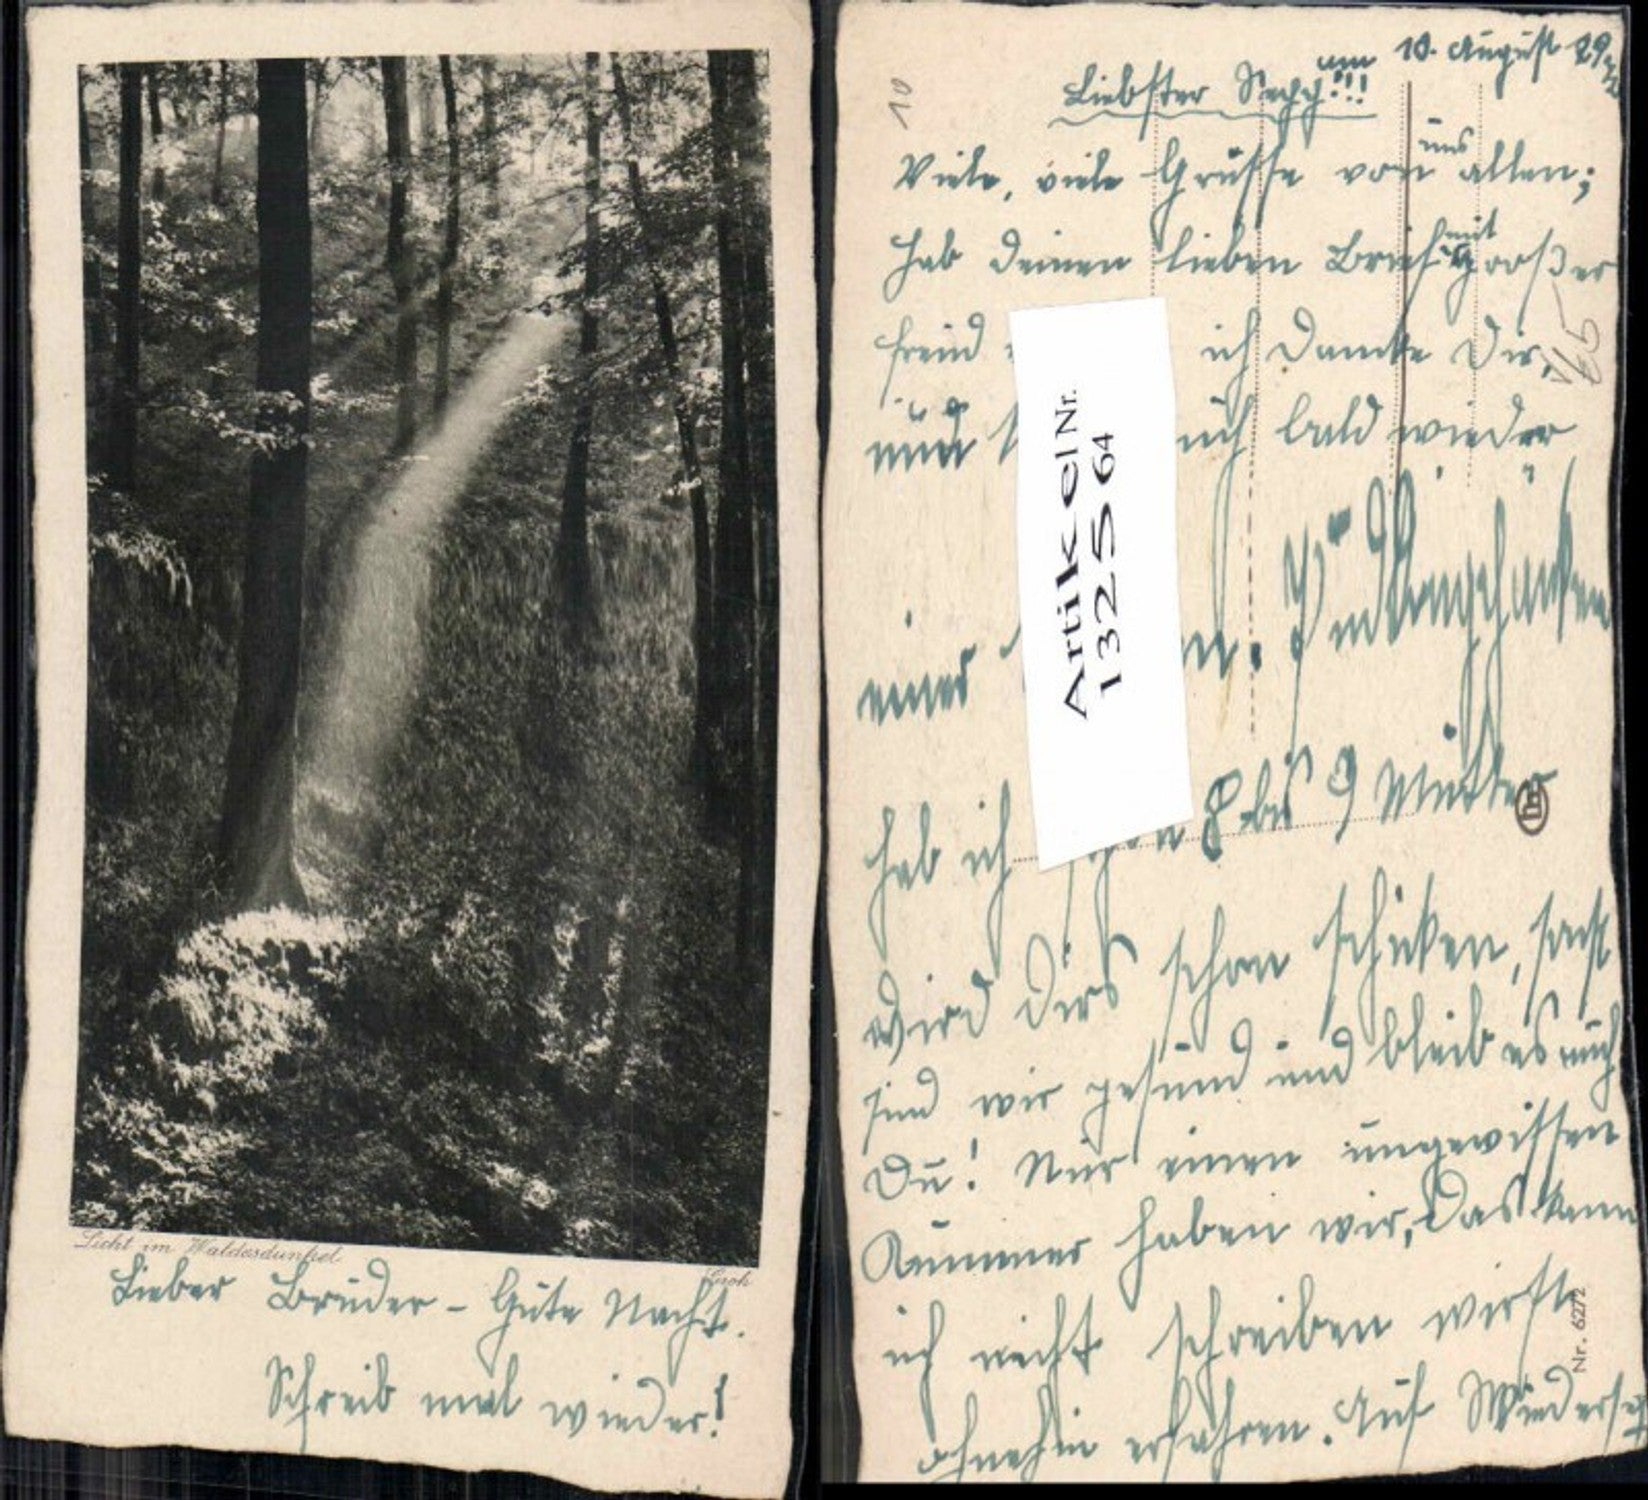 Licht im Waldesdunkel
Groh
Lieber Bruder - Gute Nacht.
Schreib mal wieder!
10
am 10. August 29
Liebster Sepp!!!
Viele, viele Grüsse von uns allen;
hab deinen lieben Brief mit großer
freud ich Danke Dir,
und auch bald wieder
einer
hab ich schon 8 bis 9 Mutter
wird Dirs schon schicken, sonst
sind wir gesund und bleib es auch
Du! Nur einen ungewissen
Kummer haben wir, das kann
ich nicht schreiben wirst
ohnehin erfahren. Auf Wiederseh
Artikel Nr.
132564
Nr. 6272